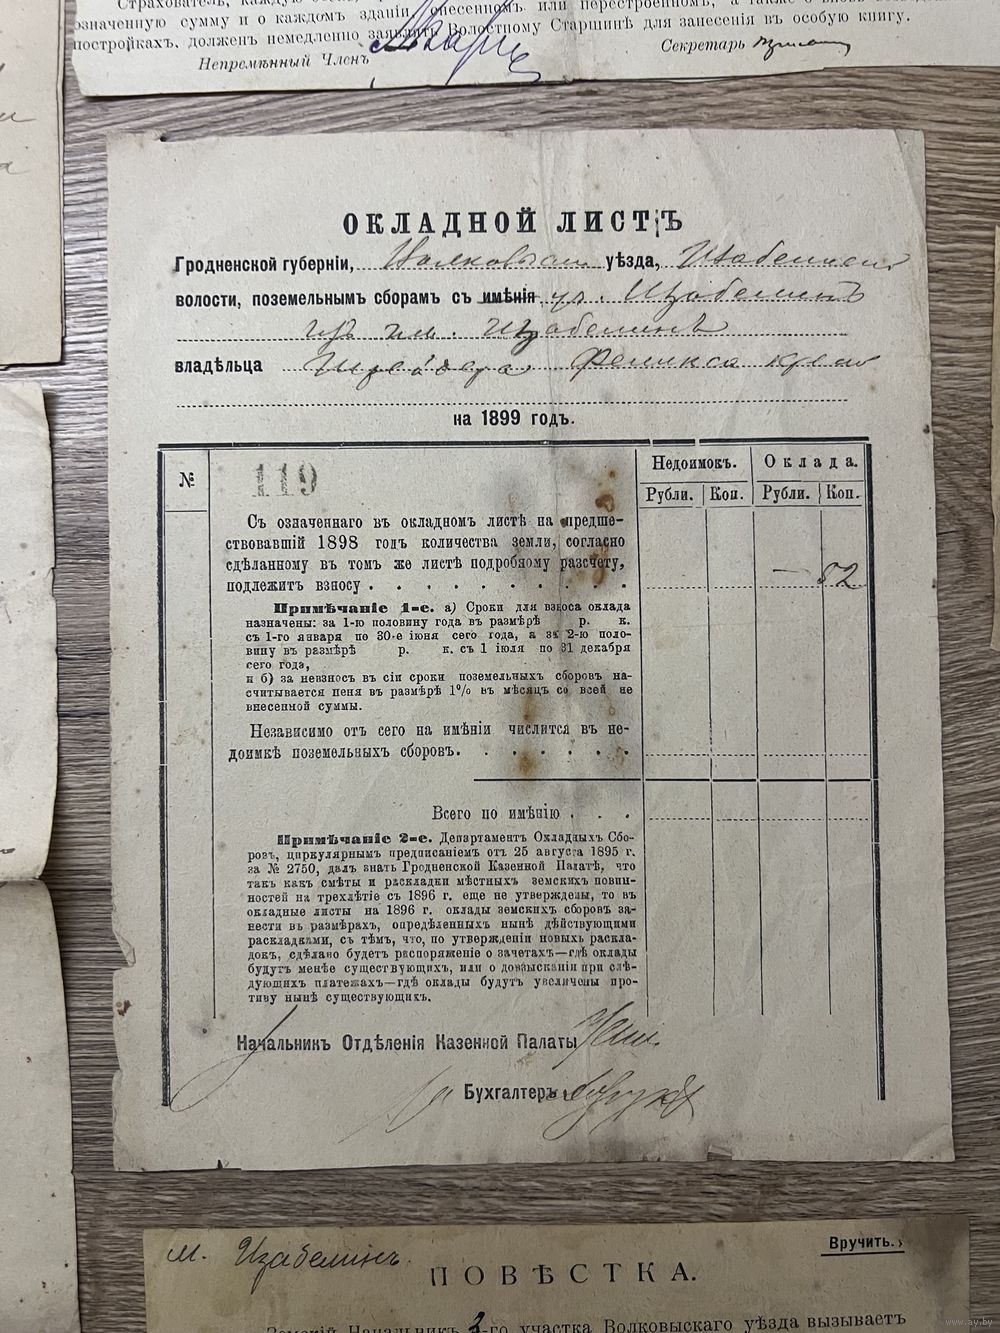 Страхователь, каждую
означенную сумму и о каждом зданіи снесенномъ или перестроенномъ, а также о вновь
постройкахъ, долженъ немедленно заявлять Волостному Старшинѣ для занесенія въ особую книгу.
Непремѣнный Членъ
Секретарь
ОКЛАДНОЙ ЛИСТЪ
Гродненской губерніи, Волковыскаго уѣзда, Изабелинской
волости, поземельнымъ сборамъ съ имѣнія ур. Изабелинъ
изъ им. Изабелинъ
владѣльца Феликса
на 1899 годъ.
№ 119
Недоимокъ. Оклада.
Рубли. Коп. Рубли. Коп.
Съ означеннаго въ окладномъ листѣ на предше-
ствовавшій 1898 годъ количества земли, согласно
сдѣланному въ томъ же листѣ подробному разсчету,
подлежитъ взносу . . . . . . . . . . — 82
Примѣчаніе 1-е. а) Сроки для взноса оклада
назначены: за 1-ю половину года въ размѣрѣ р. к.
съ 1-го января по 30-е іюня сего года, а за 2-ю поло-
вину въ размѣрѣ р. к. съ 1 іюля по 31 декабря
сего года,
и б) за невзносъ въ сіи сроки поземельныхъ сборовъ на-
считывается пеня въ размѣрѣ 1% въ мѣсяцъ со всей не
внесенной суммы.
Независимо отъ сего на имѣніи числится въ не-
доимкѣ поземельныхъ сборовъ. . . . . . .
Всего по имѣнію . . .
Примѣчаніе 2-е. Департаментъ Окладныхъ Сбо-
ровъ, циркулярнымъ предписаніемъ отъ 25 августа 1895 г.
за № 2750, далъ знать Гродненской Казенной Палатѣ, что
такъ какъ смѣты и раскладки мѣстныхъ земскихъ повин-
ностей на трехлѣтіе съ 1896 г. еще не утверждены, то въ
окладные листы на 1896 г. оклады земскихъ сборовъ за-
нести въ размѣрахъ, опредѣленныхъ нынѣ дѣйствующими
раскладками, съ тѣмъ, что, по утвержденіи новыхъ раскла-
докъ, сдѣлано будетъ распоряженіе о зачетахъ—гдѣ оклады
будутъ менѣе существующихъ, или о довзысканіи при слѣ-
дующихъ платежахъ—гдѣ оклады будутъ увеличены про-
тиву нынѣ существующихъ.
Начальникъ Отдѣленія Казенной Палаты
Бухгалтеръ
м. Изабелинъ.
Вручить.
ПОВѢСТКА.
Земскій Начальникъ 3-го участка Волковыскаго уѣзда вызываетъ
www.ay.by